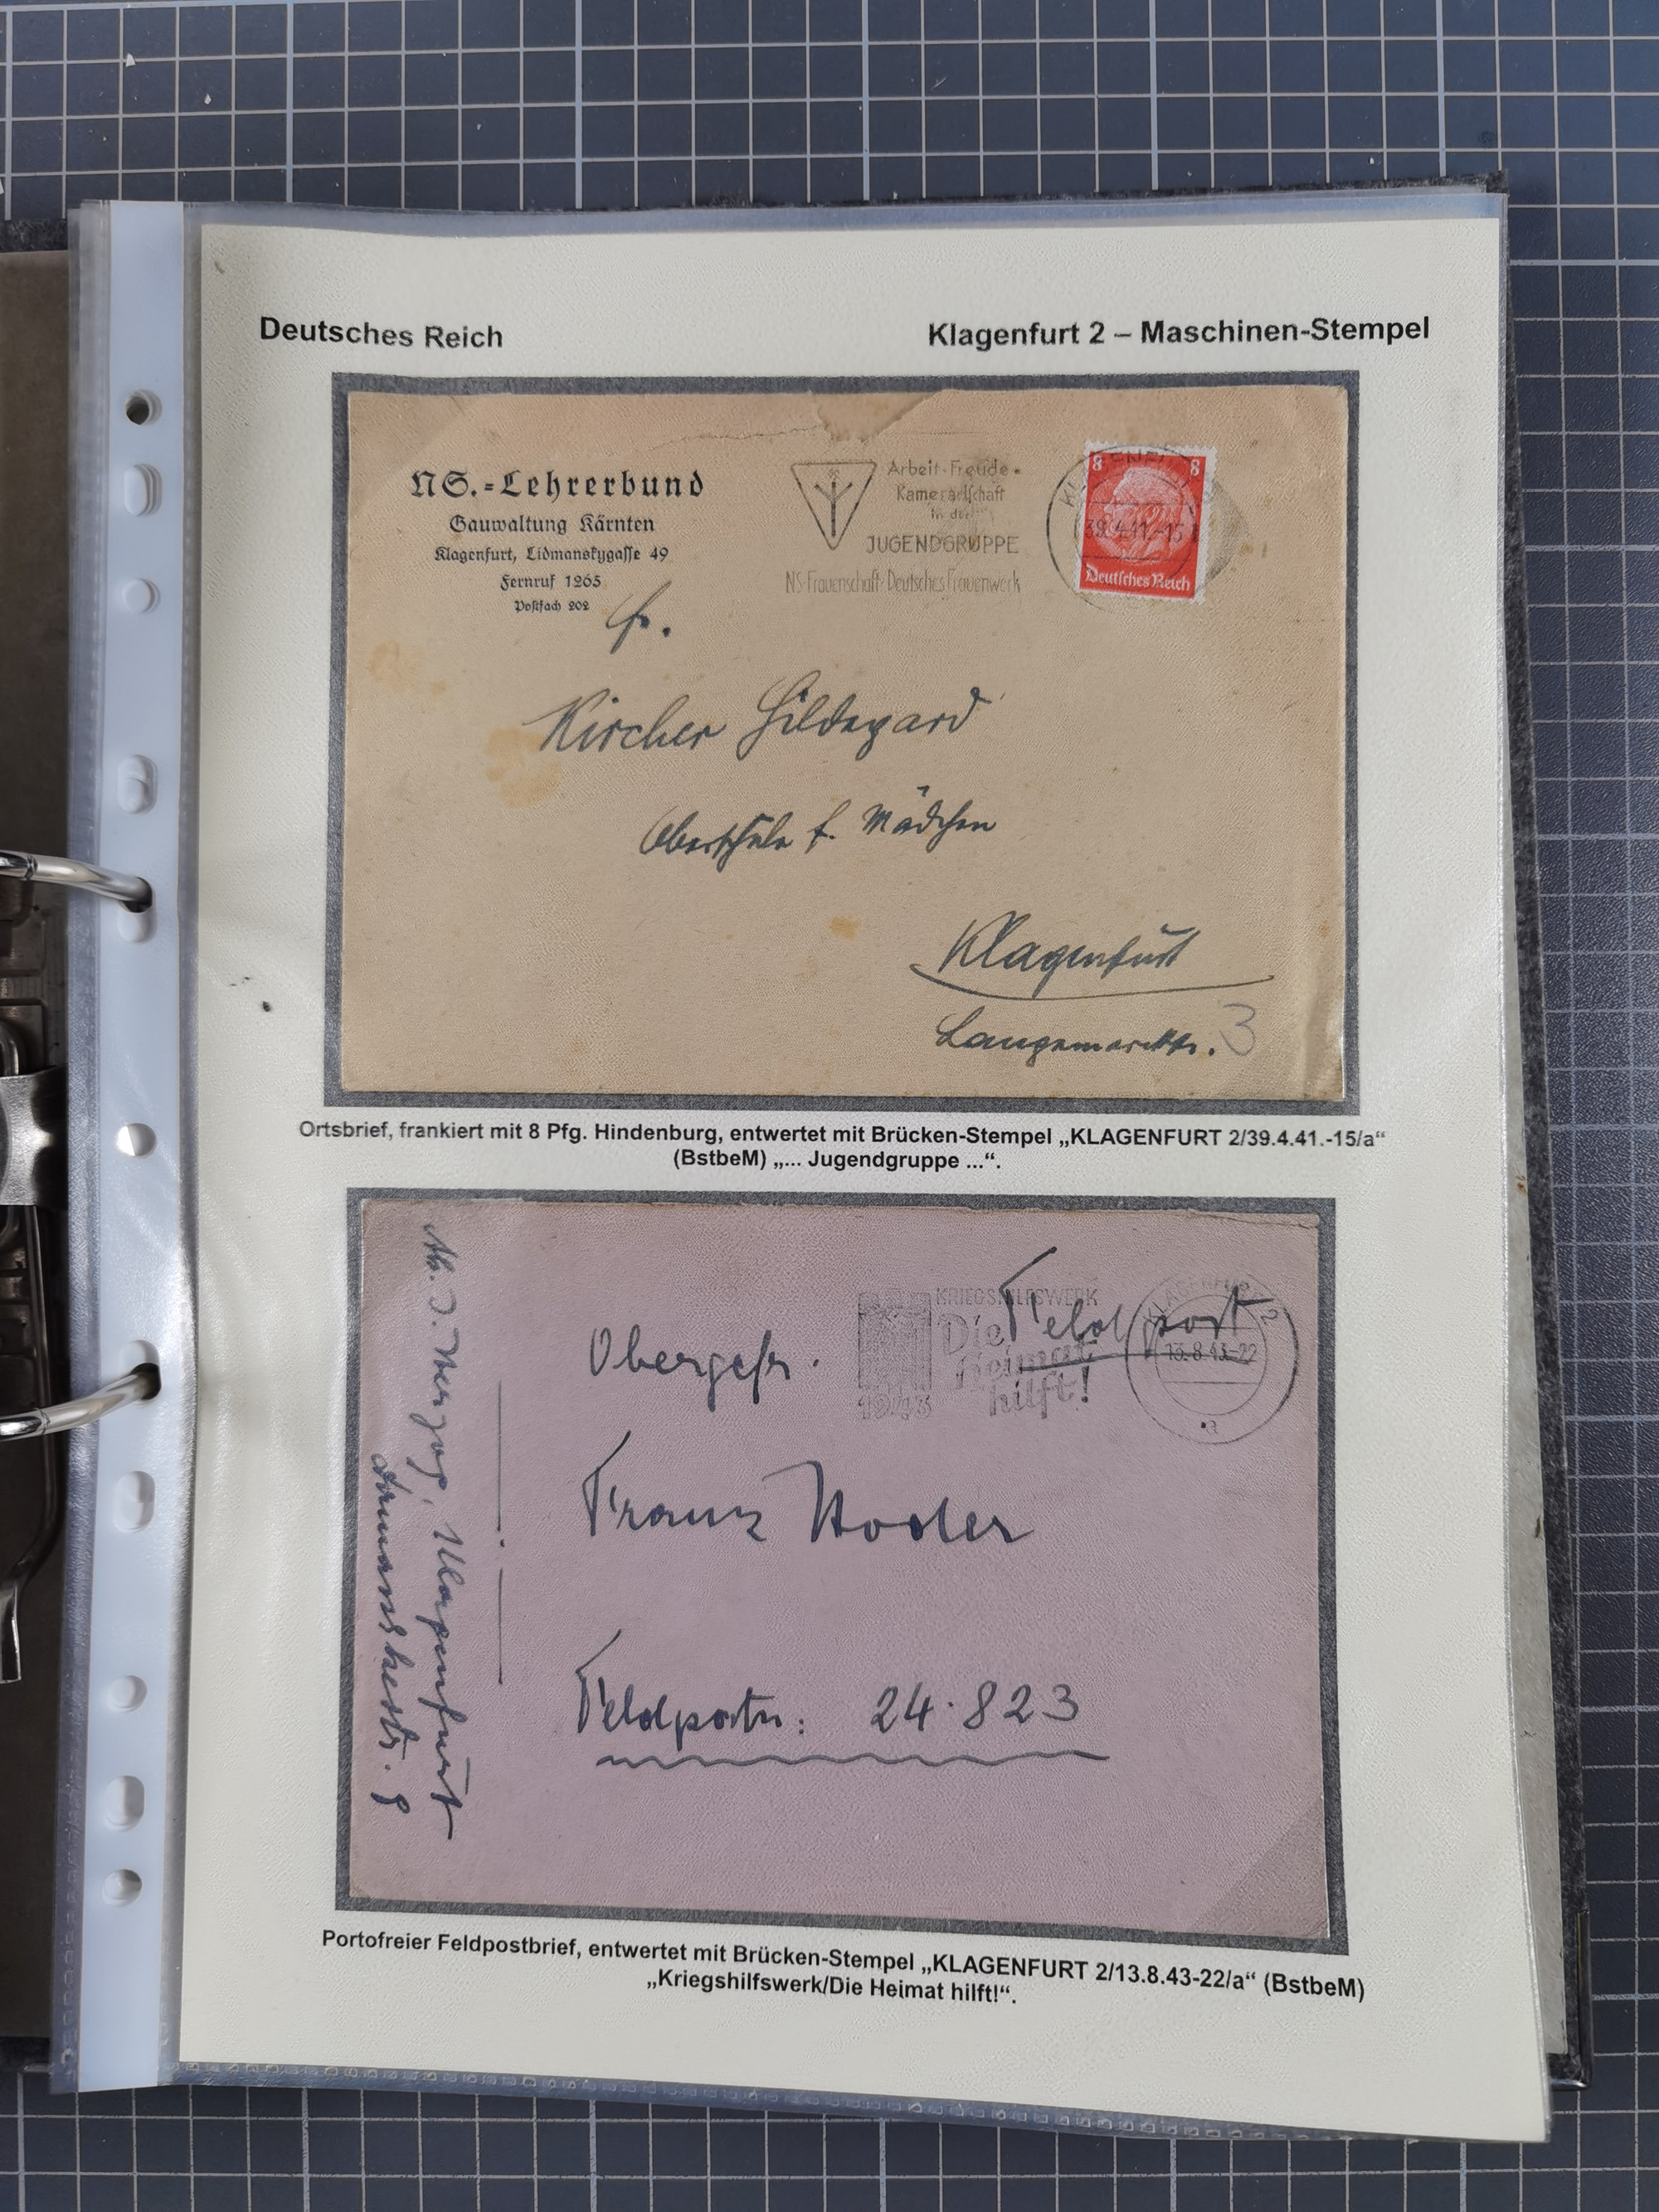 Deutsches Reich
Klagenfurt 2 – Maschinen-Stempel
NS.-Lehrerbund
Gauwaltung Kärnten
Klagenfurt, Lidmanskygasse 49
Fernruf 1265
Postfach 202
Arbeit-Freude-
Kameradschaft
in der
JUGENDGRUPPE
NS-Frauenschaft-Deutsches Frauenwerk
8 8
39.4.41.-15
Deutsches Reich
Fr.
Kircher Hildegard
Oberschule f. Mädchen
Klagenfurt
Langemarckstr. 3
Ortsbrief, frankiert mit 8 Pfg. Hindenburg, entwertet mit Brücken-Stempel „KLAGENFURT 2/39.4.41.-15/a“
(BstbeM) „... Jugendgruppe ...“.
Feldpost
KRIEGSHILFSWERK
Die
Heimat
hilft!
1943
KLAGENFURT 2
13.8.43-22
a
Obergefr.
Franz
Feldpostnr: 24.823
Klagenfurt
Portofreier Feldpostbrief, entwertet mit Brücken-Stempel „KLAGENFURT 2/13.8.43-22/a“ (BstbeM)
„Kriegshilfswerk/Die Heimat hilft!“.